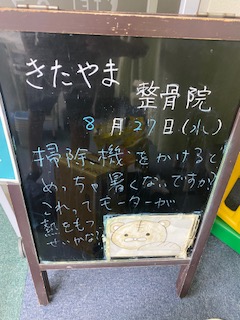 きたやま
整骨院
8月27日(水)
掃除機をかけると
めっちゃ暑くないですか?
これってモーターが
熱をもつ
せいかな?